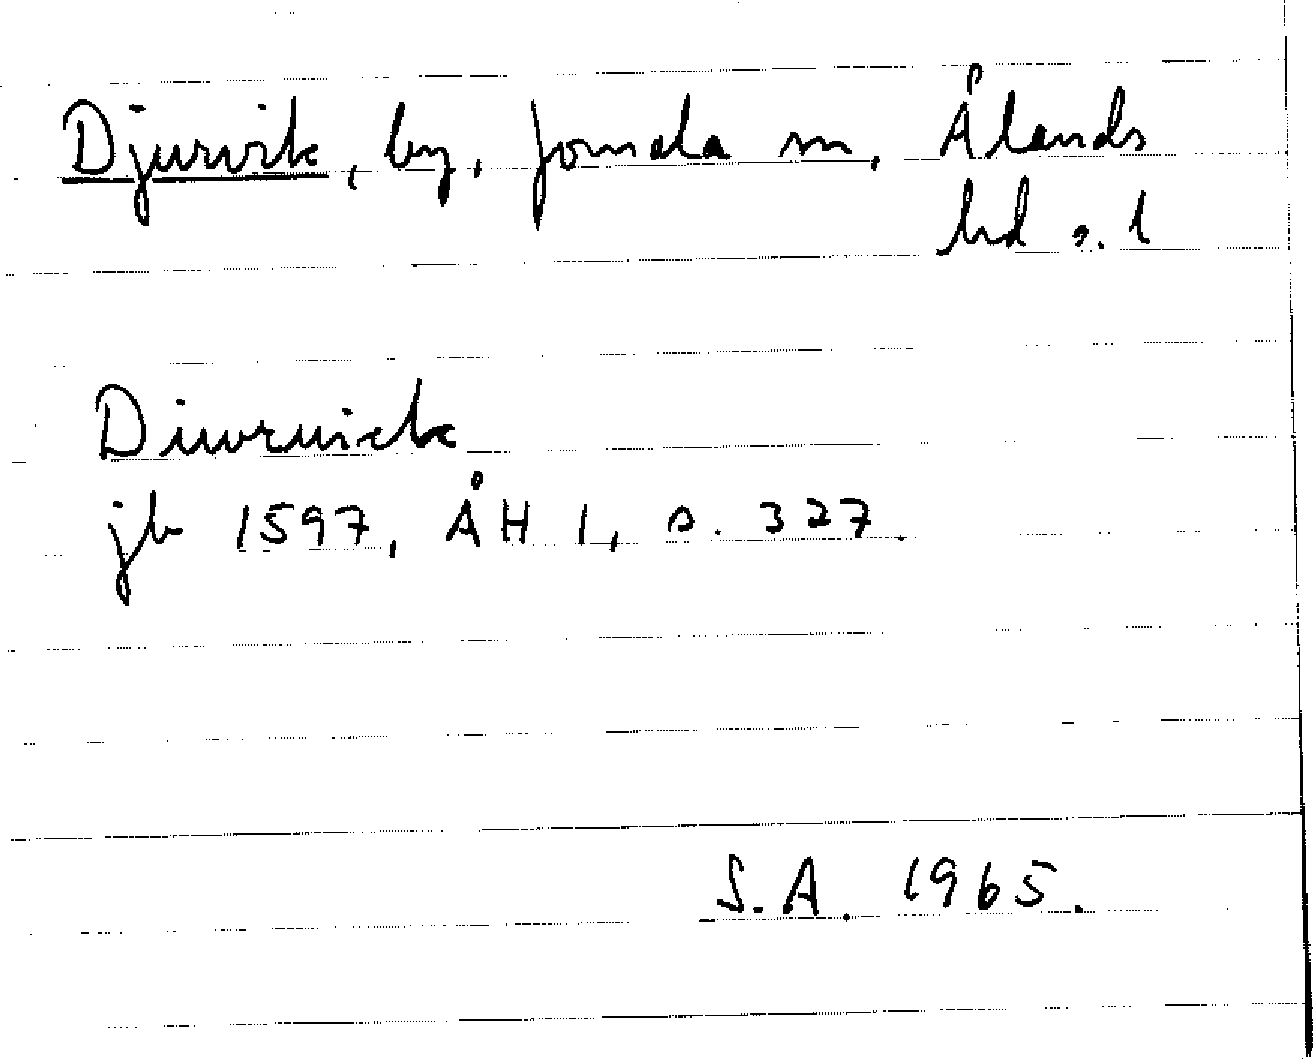 Djurvik, by, Jomala sn, Ålands
hd s. l
Diurwick
jb 1597, ÅH 1, s. 327.
S.A. 1965.